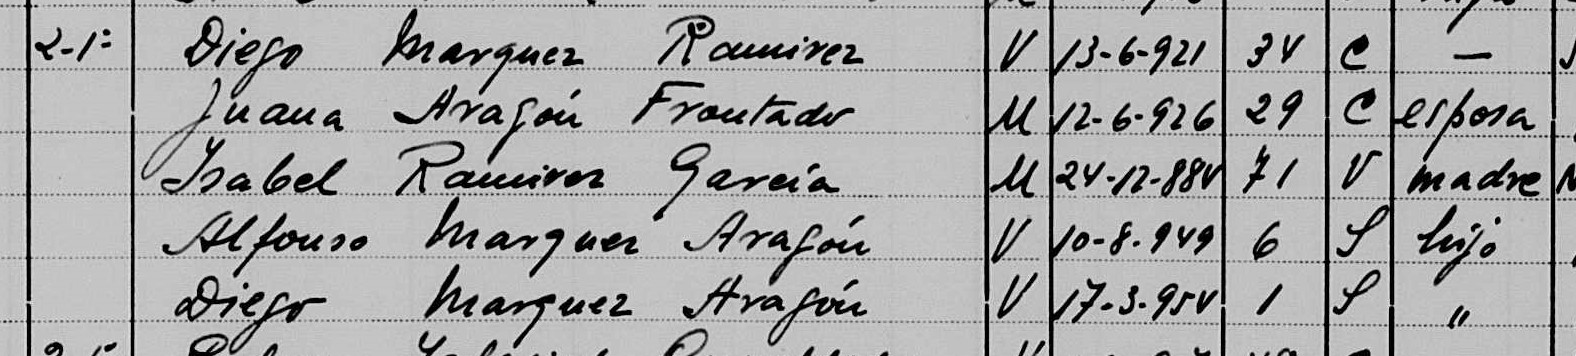 2-1º Diego Marquez Ramirez V 13-6-921 34 C —
Juana Aragón Frontado M 12-6-926 29 C esposa
Isabel Ramirez García M 24-12-884 71 V madre
Alfonso Marquez Aragón V 10-8-949 6 S hijo
Diego Marquez Aragón V 17-3-954 1 S "